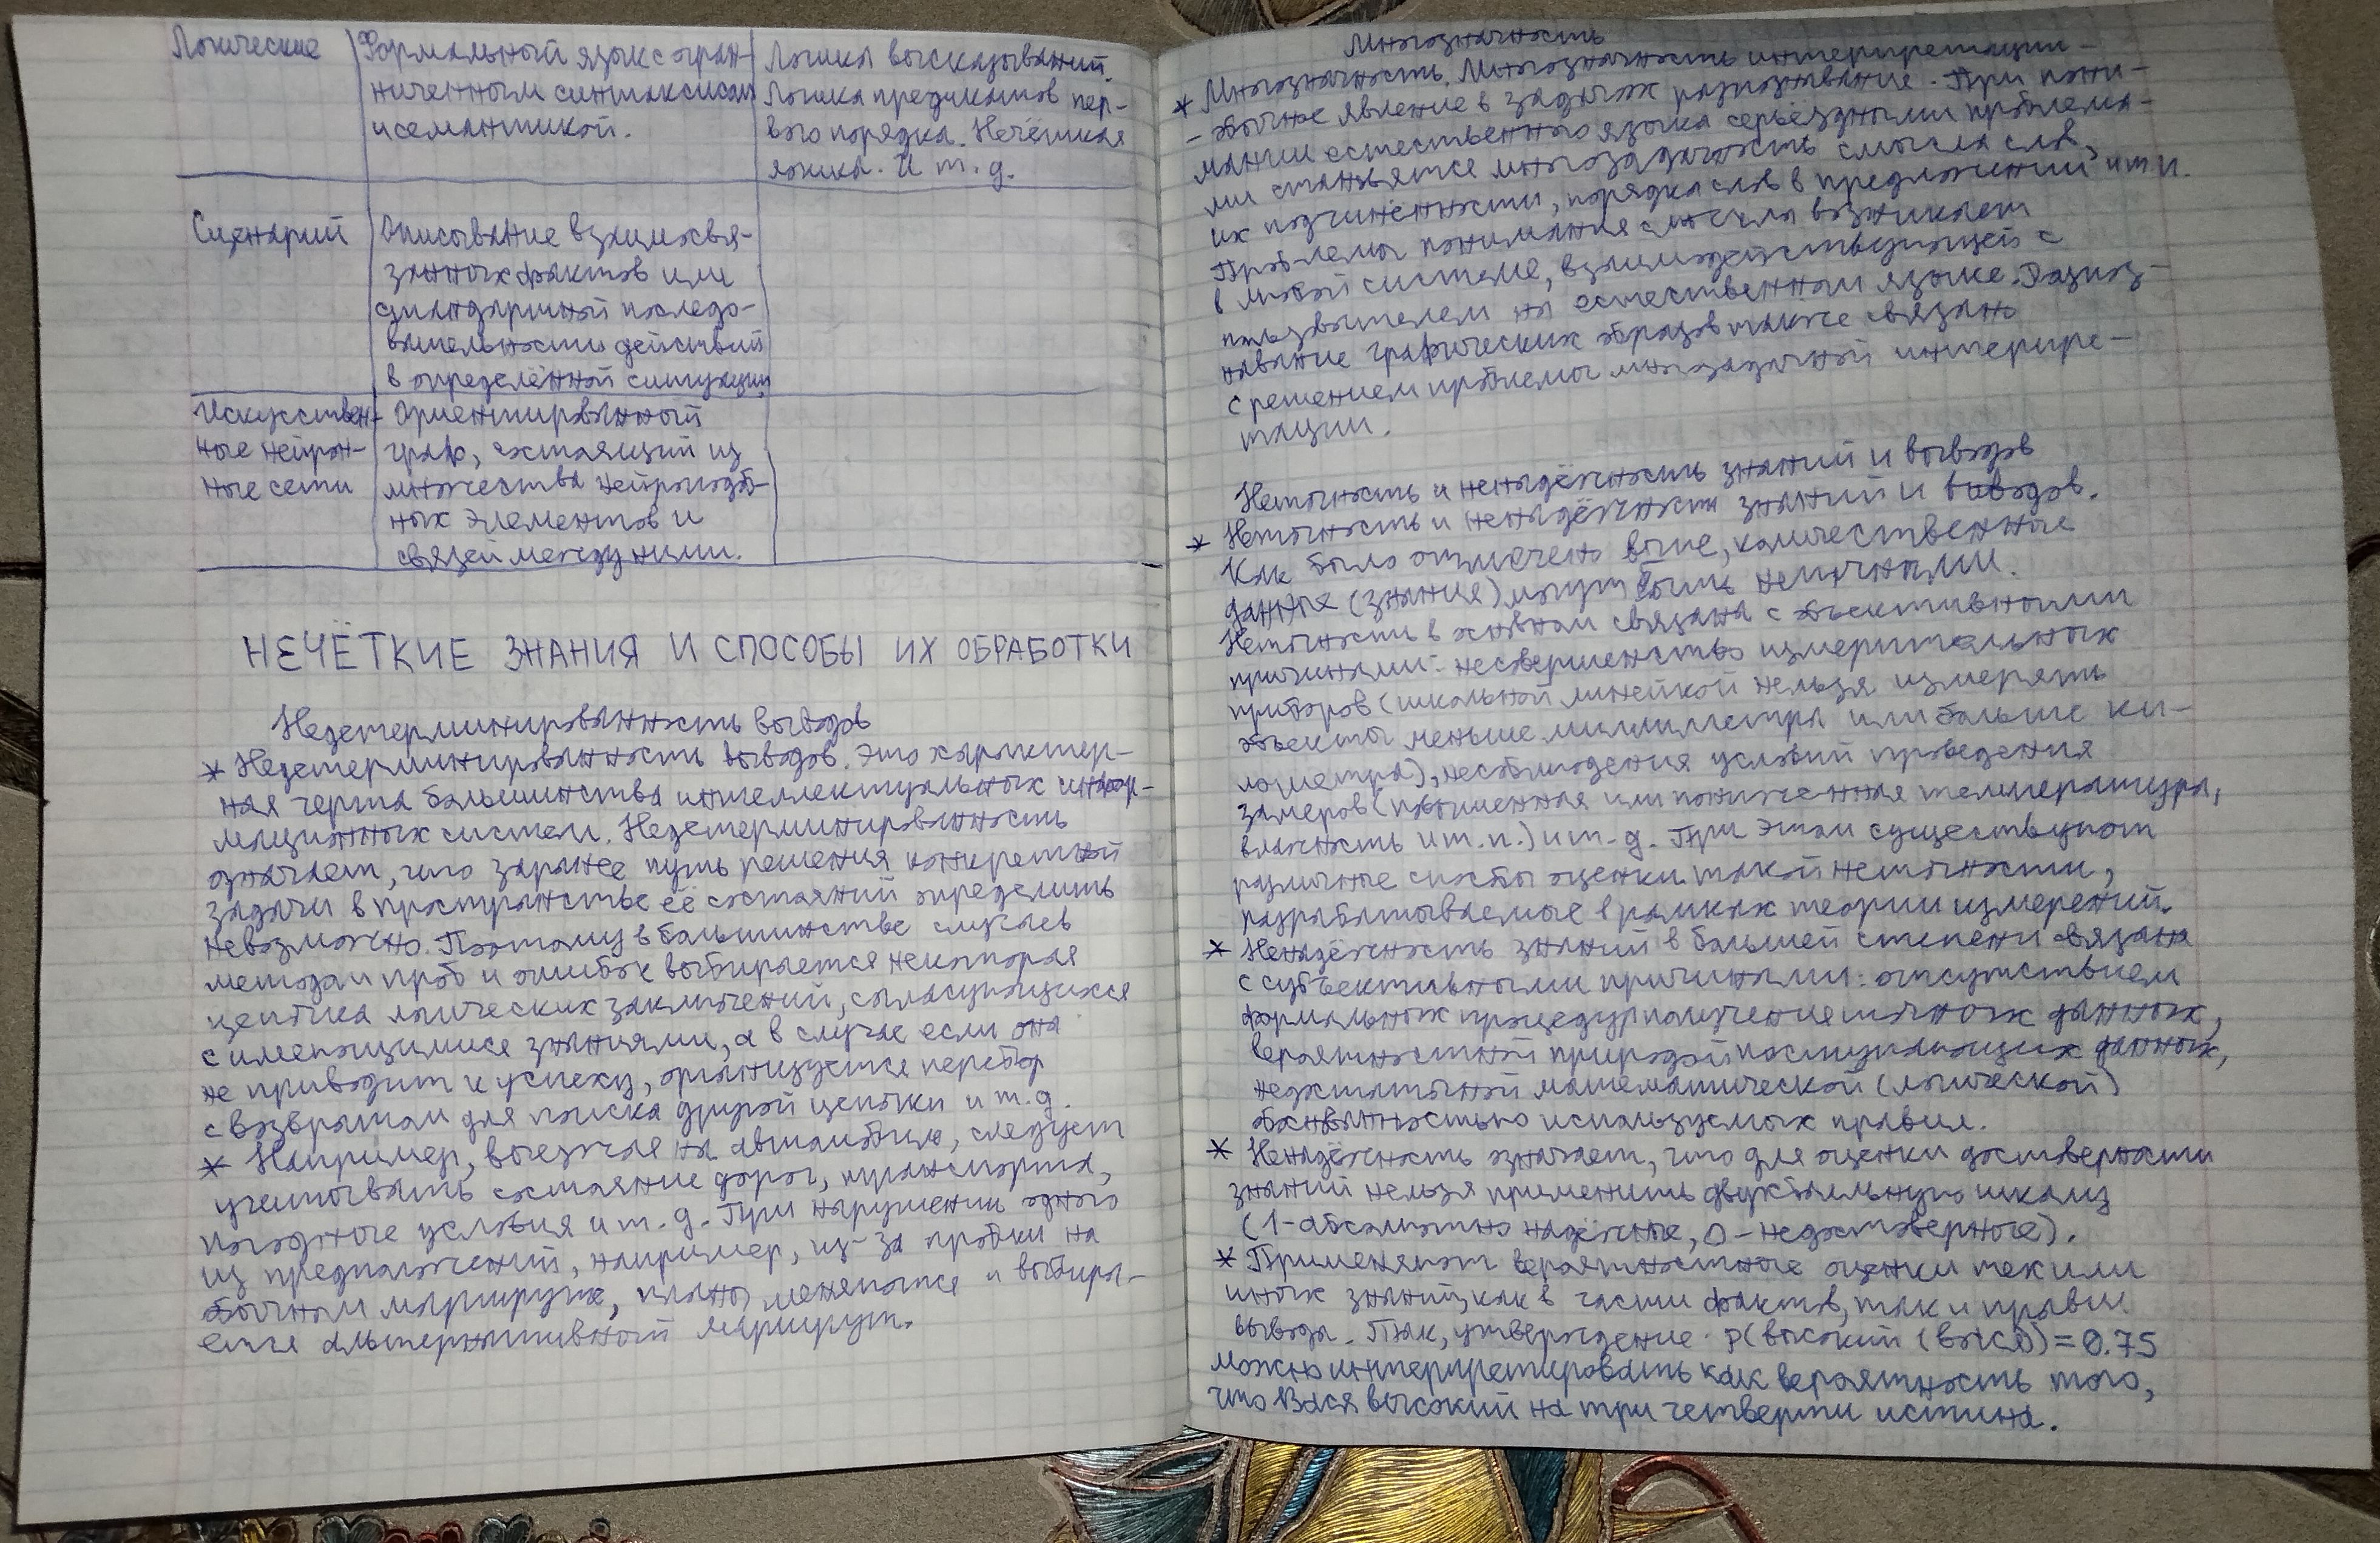 Логические
Формальный язык с огран-
ниченным синтаксисом
и семантикой.
Логика высказываний.
Логика предикатов пер-
вого порядка. Нечёткая
логика. И т.д.
Сценарий
Описывание взаимосвя-
занных фактов или
стандартной последо-
вательности действий
в определённой ситуации.
Искусствен-
ные нейрон-
ные сети
Ориентированный
граф, состоящий из
множества нейроподоб-
ных элементов и
связей между ними.
НЕЧЁТКИЕ ЗНАНИЯ И СПОСОБЫ ИХ ОБРАБОТКИ
Недетерминированность выводов
* Недетерминированность выводов. Это характер-
ная черта большинства интеллектуальных инфор-
мационных систем. Недетерминированность
означает, что заранее путь решения конкретной
задачи в пространстве её состояний определить
невозможно. Поэтому в большинстве случаев
методом проб и ошибок выбирается некоторая
цепочка логических заключений, согласующихся
с имеющимися знаниями, а в случае если она
не приводит к успеху, организуется перебор
с возвратом для поиска другой цепочки и т.д.
* Например, выезжая на автомобиле, следует
учитывать состояние дорог, транспорта,
погодные условия и т.д. При нарушении одного
из предположений, например, из-за пробки на
обычном маршруте, планы меняются и выбира-
ется альтернативный маршрут.
Многозначность
* Многозначность. Многозначность интерпретации -
- обычное явление в задачах распознавание. При пони-
мании естественного языка серьёзными проблема-
ми становятся многозадачность смысла слов,
их подчинённости, порядка слов в предложении и т.п.
Проблемы понимания смысла возникает
в любой системе, взаимодействующей с
пользователем на естественном языке. Распоз-
навание графических образов также связано
с решением проблемы многозадачной интерпре-
тации.
Неточность и ненадёжность знаний и выводов
* Неточность и ненадёжность знаний и выводов.
Как было отмечено выше, количественные
данные (знания) могут быть неточными.
Неточность в основном связана с объективными
причинами: несовершенство измерительных
приборов (школьной линейкой нельзя измерять
объекты меньше миллиметра или больше ки-
лометра), несоблюдения условий проведения
замеров (повышенная или пониженная температура,
влажность и т.п.) и т.д. При этом существуют
различные способы оценки такой неточности,
разрабатываемые в рамках теории измерений.
* Ненадёжность знаний в большей степени связана
с субъективными причинами: отсутствием
формальных процедур получения точных данных,
вероятностной природой поступающих данных,
недостаточной математической (логической)
обоснованностью используемых правил.
* Ненадёжность означает, что для оценки достоверности
знаний нельзя применить двухбалльную шкалу
(1 - абсолютно надёжные, 0 - недостоверные).
* Применяют вероятностные оценки тех или
иных знаний, как в части фактов, так и правил
вывода. Так, утверждение P(высокий (Вася)) = 0.75
можно интерпретировать как вероятность того,
что Вася высокий на три четверти истина.